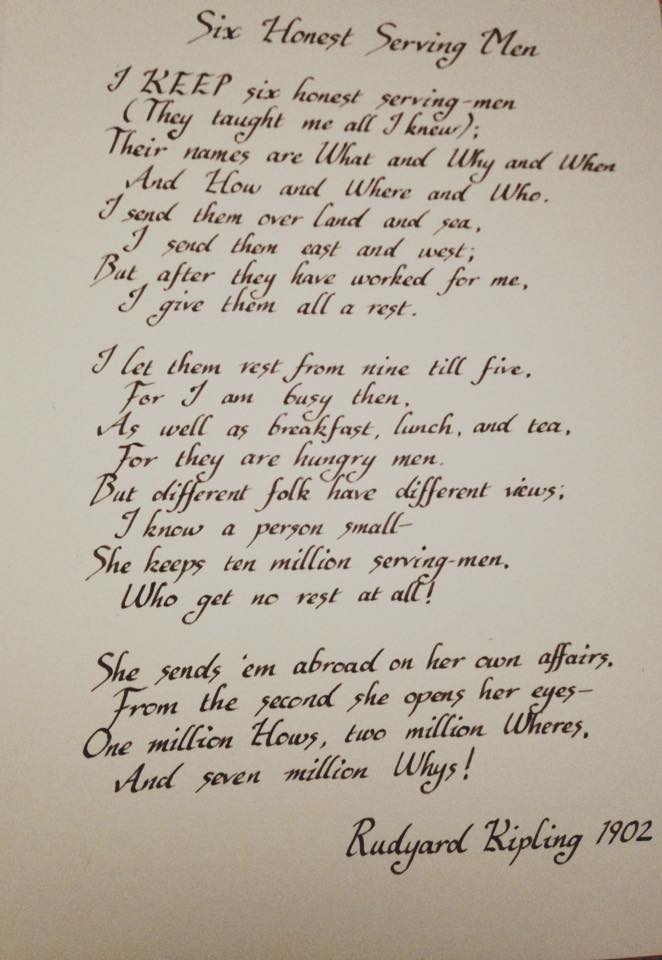 Six Honest Serving Men
I KEEP six honest serving-men
(They taught me all I knew);
Their names are What and Why and When
And How and Where and Who.
I send them over land and sea,
I send them east and west;
But after they have worked for me,
I give them all a rest.
I let them rest from nine till five,
For I am busy then,
As well as breakfast, lunch, and tea,
For they are hungry men.
But different folk have different views;
I know a person small—
She keeps ten million serving-men,
Who get no rest at all!
She sends 'em abroad on her own affairs,
From the second she opens her eyes—
One million Hows, two million Wheres,
And seven million Whys!
Rudyard Kipling 1902